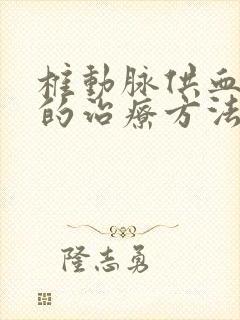 椎動脉供血
的治療方法
隆志勇